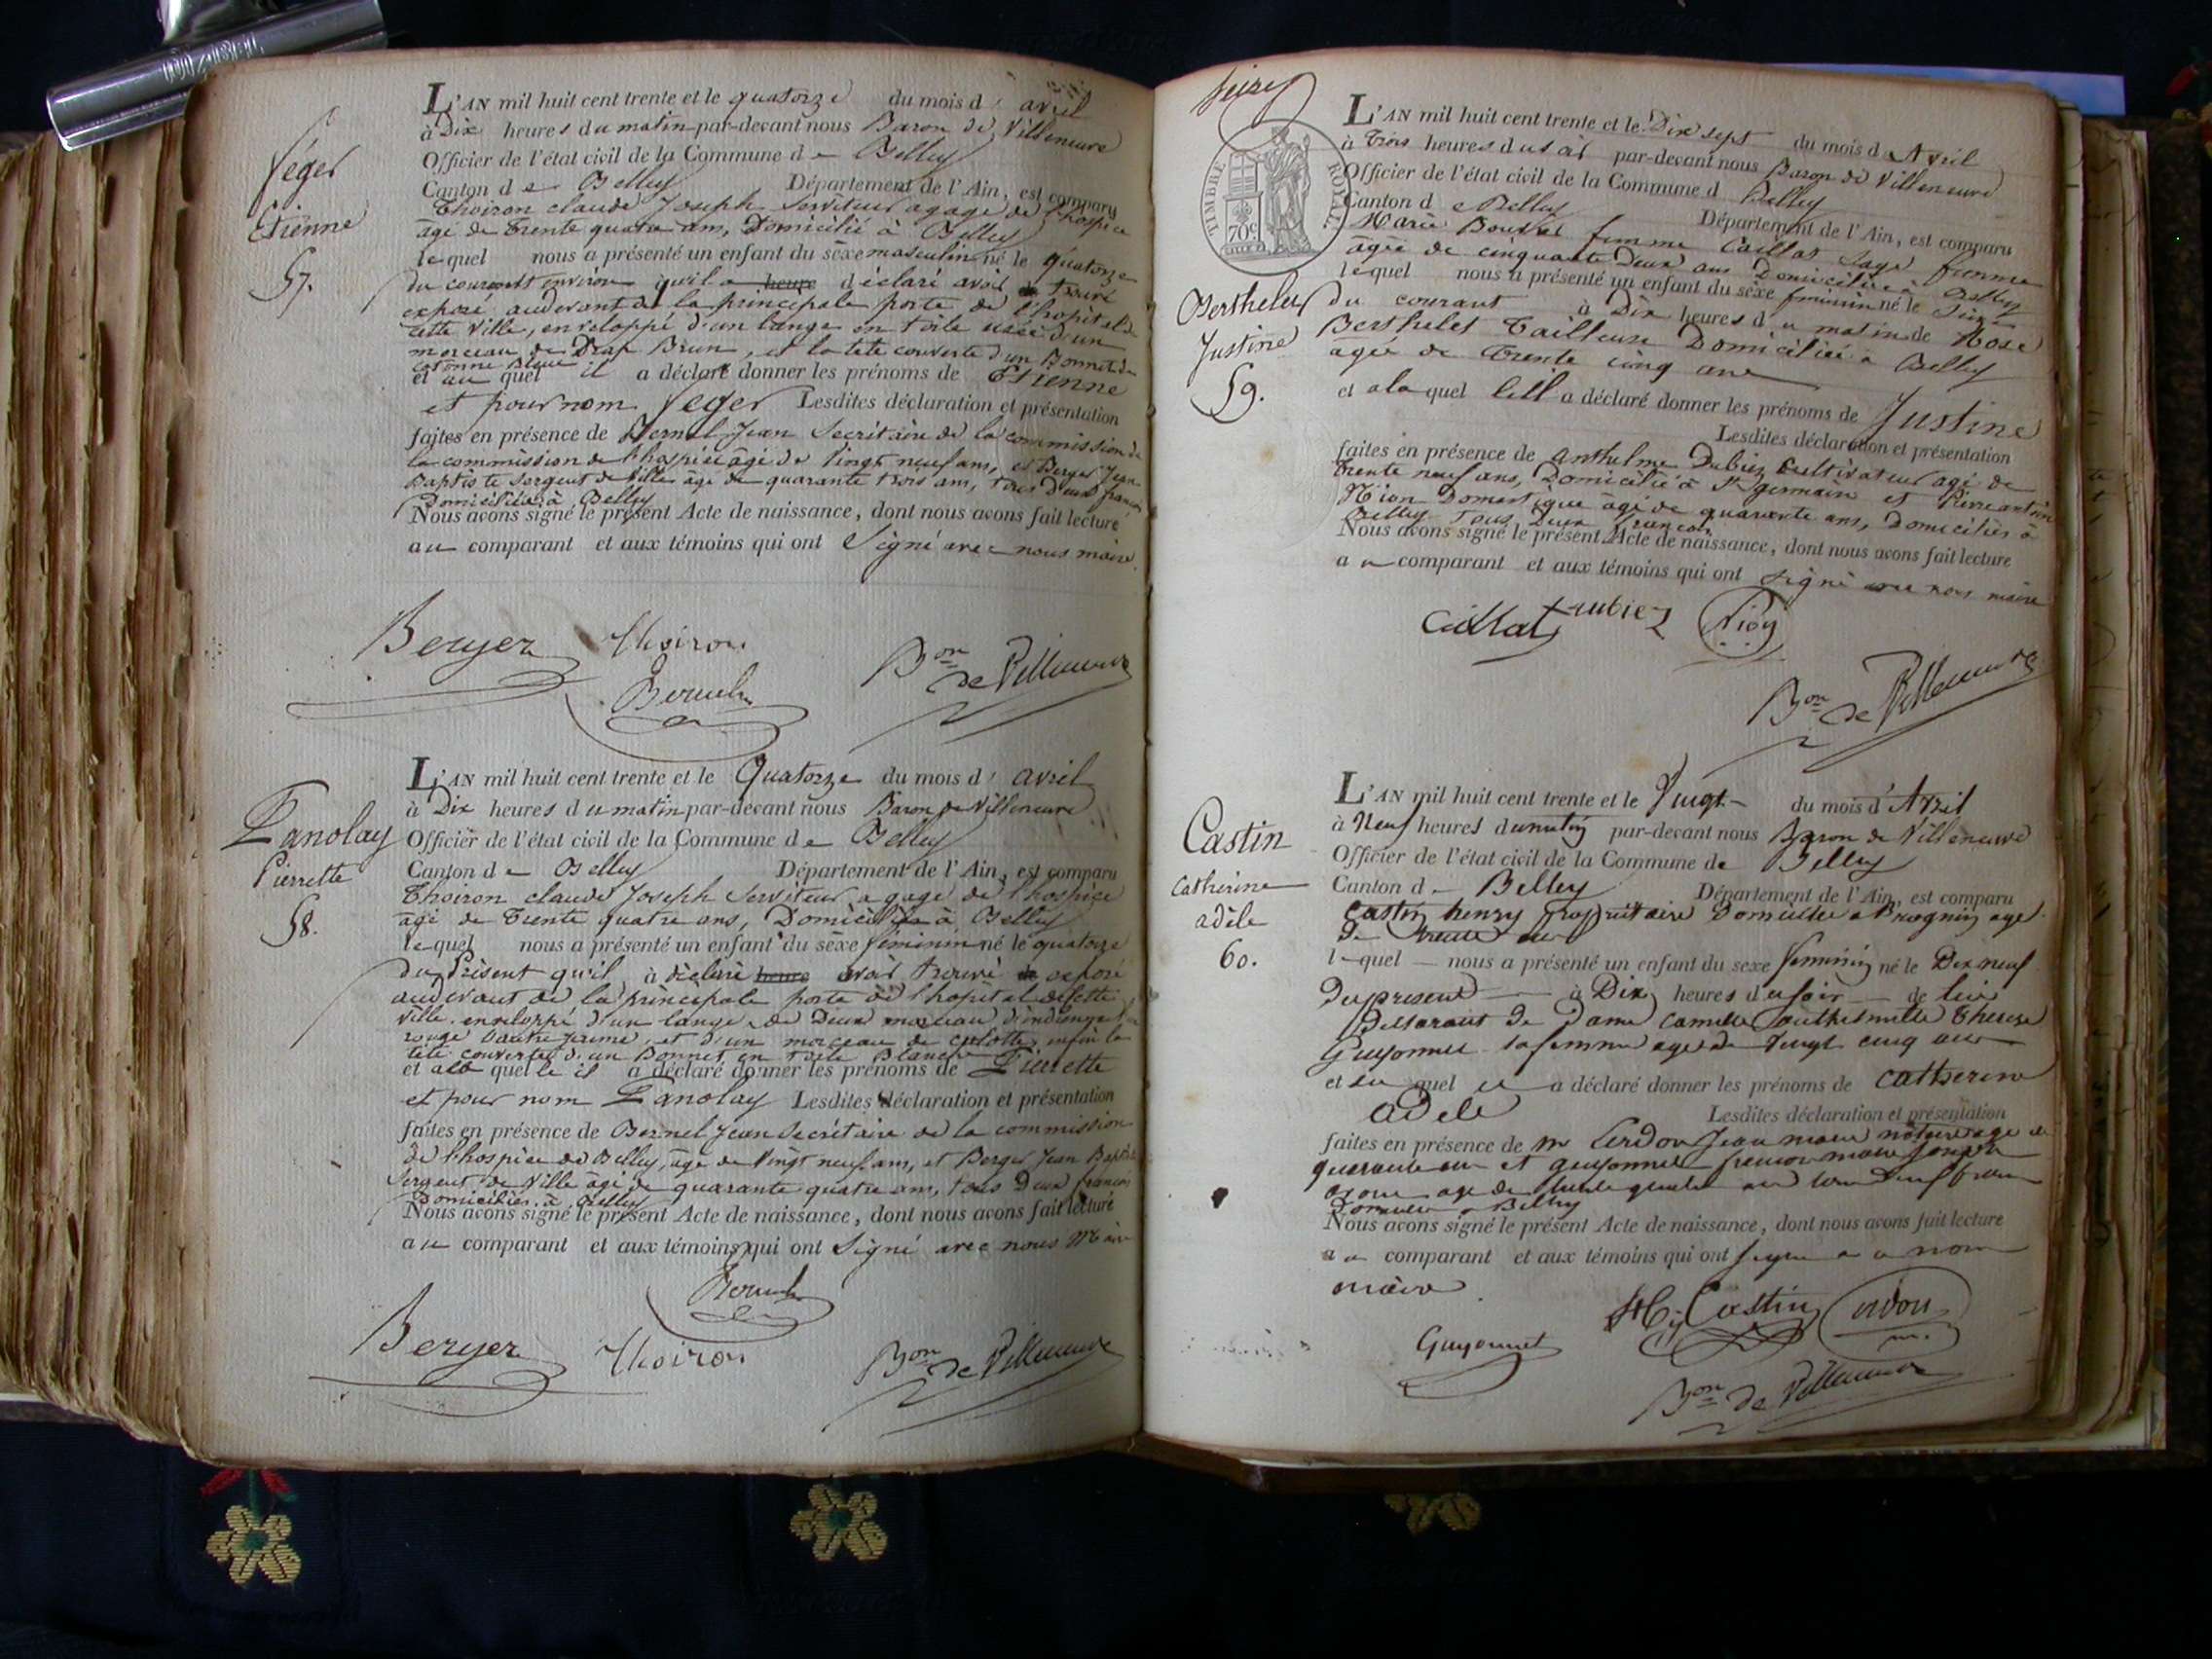 L'AN mil huit cent trente et le quatorze du mois d' avril
à Dix heures du matin par-devant nous Baron de Villeneuve
Officier de l'état civil de la Commune de Belley
Canton de Belley Département de l'Ain, est comparu
Thoiron claude Joseph Serviteur a gage de l'hospice
âgé de trente quatre ans, Domicilié à Belley
lequel nous a présenté un enfant du sèxe masculin né le quatorze
du courant environ qu'il a heure déclaré avoir trouvé
exposé audevant de la principale porte de l'hopital de
cette ville, enveloppé d'un lange en toile usée d'un
morceau de Drap Brun, et la tete couverte d'un Bonnet de
cotonne Bleue
et au quel il a déclaré donner les prénoms de Etienne
et pour nom Léger Lesdites déclaration et présentation
faites en présence de Bernel Jean Secrétaire de la commission de
la commission de l'hospice âgé de vingt neuf ans, et Berger Jean
Baptiste Sergent de Ville âgé de quarante trois ans, tous Deux français
Domiciliés à Belley
Nous avons signé le présent Acte de naissance, dont nous avons fait lecture
au comparant et aux témoins qui ont Signé avec nous maire
Léger
Etienne
57.
Berger Thoiron
Bernel
Bon de Villeneuve
L'AN mil huit cent trente et le Quatorze du mois d' avril
à Dix heures du matin par-devant nous Baron de Villeneuve
Officier de l'état civil de la Commune de Belley
Canton de Belley Département de l'Ain, est comparu
Thoiron claude Joseph Serviteur a gage de l'hospice
âgé de trente quatre ans, Domicilié à Belley
lequel nous a présenté un enfant du sèxe féminin né le quatorze
du Présent qu'il à déclaré heure avoir trouvé exposé
audevant de la principale porte de l'hopital de cette
ville enveloppé d'un lange de Deux morceau d'indienne
rouge et d'un morceau de culotte, enfin la
tete couverte d'un Bonnet en toile Blanche
et a la quelle il a déclaré donner les prénoms de Pierrette
et pour nom Panolay Lesdites déclaration et présentation
faites en présence de Bernel Jean Secrétaire de la commission
de l'hospice de Belley, âgé de Vingt neuf ans, et Berger Jean Baptiste
Sergent de Ville âgé de quarante quatre ans, tous Deux français
Domiciliés à Belley
Nous avons signé le présent Acte de naissance, dont nous avons fait lecture
au comparant et aux témoins qui ont Signé avec nous Maire
Panolay
Pierrette
58.
Bernel
Berger Thoiron Bon de Villeneuve
TIMBRE ROYAL
70c
L'AN mil huit cent trente et le Dix sept du mois d Avril
à Trois heures du soir par-devant nous Baron de Villeneuve
Officier de l'état civil de la Commune d Belley
Canton de Belley Département de l'Ain, est comparu
Marie femme Caillat Sage femme
âgée de cinquante Deux ans Domiciliée à Belley
lequel nous a présenté un enfant du sèxe féminin né le Seize
du courant à Dix heures du matin de Rose
Berthelet Tailleuse Domiciliée à Belley
âgée de trente cinq ans
et a la quel Elle a déclaré donner les prénoms de Justine
Lesdites déclaration et présentation
faites en présence de anthelme Dubiez Cultivateur âgé de
trente neuf ans, Domicilié à St germain et Pierre antoine
Domestique âgé de quarante ans, Domiciliés à
Belley tous Deux français
Nous avons signé le présent Acte de naissance, dont nous avons fait lecture
au comparant et aux témoins qui ont signé avec nous maire
Berthelet
Justine
59.
Caillat
Bon de Villeneuve
L'AN mil huit cent trente et le Vingt du mois d' Avril
à Neuf heures du matin par-devant nous Baron de Villeneuve
Officier de l'état civil de la Commune de Belley
Canton de Belley Département de l'Ain, est comparu
Castin henry propriétaire Domicilié a âgé
de trente ans
lequel nous a présenté un enfant du sexe féminin né le Dix neuf
du présent à Dix heures du soir de lui
Déclarant de Dame Camille Therese
Guyonnet sa femme agée de vingt cinq ans
et au quel il a déclaré donner les prénoms de Catherine
adele
Lesdites déclaration et présentation
faites en présence de mr Jean marie notaire age de
quarante ans et guyonnet marie Joseph
age de trente quatre ans tous Deux français
Domiciliés a Belley
Nous avons signé le présent Acte de naissance, dont nous avons fait lecture
au comparant et aux témoins qui ont signé avec nous
maire
Castin
Catherine
adèle
60.
Hy Castin
Guyonnet
Bon de Villeneuve